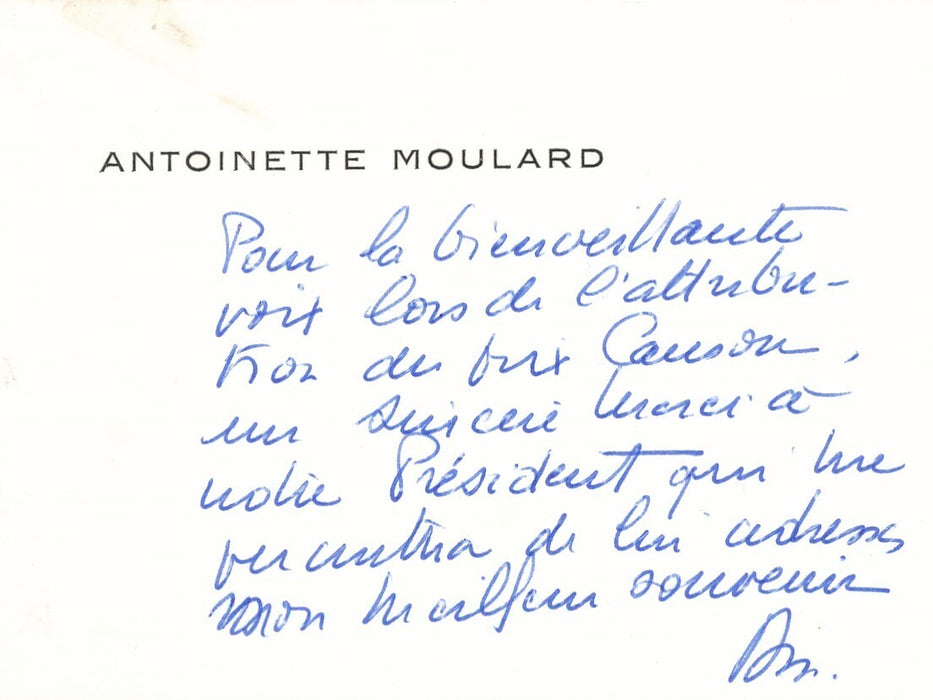 ANTOINETTE MOULARD
Pour la bienveillante
voix lors de l'attribu-
tion du prix Canson,
un sincère merci à
notre Président qui me
permettra de lui adresser
mon meilleur souvenir
Am.